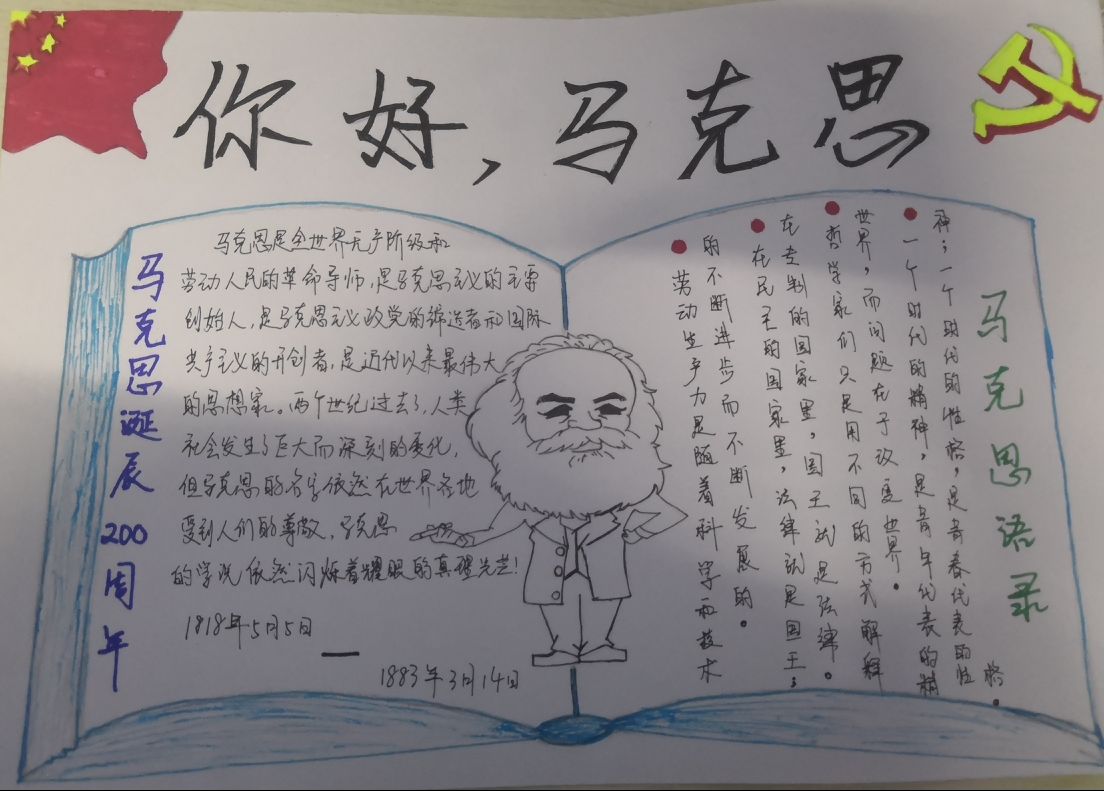 你好,马克思
马克思诞辰200周年
马克思是全世界无产阶级和
劳动人民的革命导师,是马克思主义的主要
创始人,是马克思主义政党的缔造者和国际
共产主义的开创者,是近代以来最伟大
的思想家。两个世纪过去了,人类
社会发生了巨大而深刻的变化,
但马克思的名字依然在世界各地
受到人们的尊敬,马克思
的学说依然闪烁着耀眼的真理光芒!
1818年5月5日
—
1883年3月14日
马克思语录
●一个时代的精神,是青年代表的精
神;一个时代的性格,是青春代表的性
格。
●哲学家们只是用不同的方式解释
世界,而问题在于改变世界。
●在民主的国家里,法律就是国王;
在专制的国家里,国王就是法律。
●劳动生产力是随着科学和技术
的不断进步而不断发展的。